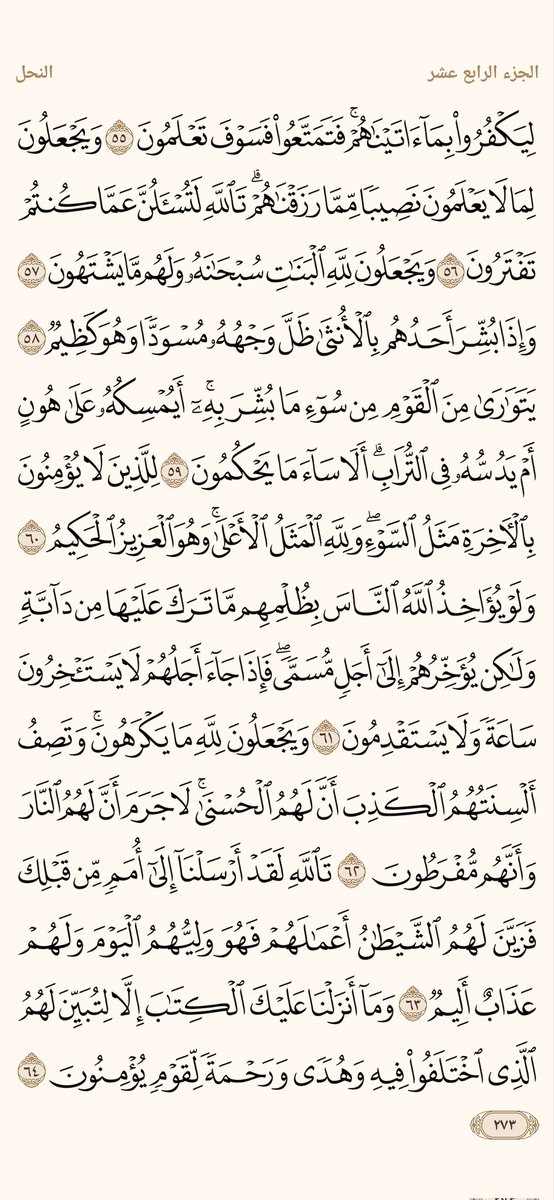 الجزء الرابع عشر
النحل
لِيَكْفُرُوا۟ بِمَآ ءَاتَيْنَٰهُمْ ۚ فَتَمَتَّعُوا۟ فَسَوْفَ تَعْلَمُونَ ٥٥ وَيَجْعَلُونَ
لِمَا لَا يَعْلَمُونَ نَصِيبًا مِّمَّا رَزَقْنَٰهُمْ ۗ تَٱللَّهِ لَتُسْـَٔلُنَّ عَمَّا كُنتُمْ
تَفْتَرُونَ ٥٦ وَيَجْعَلُونَ لِلَّهِ ٱلْبَنَٰتِ سُبْحَٰنَهُۥ وَلَهُم مَّا يَشْتَهُونَ ٥٧
وَإِذَا بُشِّرَ أَحَدُهُم بِٱلْأُنثَىٰ ظَلَّ وَجْهُهُۥ مُسْوَدًّا وَهُوَ كَظِيمٌ ٥٨
يَتَوَٰرَىٰ مِنَ ٱلْقَوْمِ مِن سُوٓءِ مَا بُشِّرَ بِهِۦٓ ۚ أَيُمْسِكُهُۥ عَلَىٰ هُونٍ
أَمْ يَدُسُّهُۥ فِى ٱلتُّرَابِ ۗ أَلَا سَآءَ مَا يَحْكُمُونَ ٥٩ لِلَّذِينَ لَا يُؤْمِنُونَ
بِٱلْءَاخِرَةِ مَثَلُ ٱلسَّوْءِ ۖ وَلِلَّهِ ٱلْمَثَلُ ٱلْأَعْلَىٰ ۚ وَهُوَ ٱلْعَزِيزُ ٱلْحَكِيمُ ٦٠
وَلَوْ يُؤَاخِذُ ٱللَّهُ ٱلنَّاسَ بِظُلْمِهِم مَّا تَرَكَ عَلَيْهَا مِن دَآبَّةٍ
وَلَٰكِن يُؤَخِّرُهُمْ إِلَىٰٓ أَجَلٍ مُّسَمًّى ۖ فَإِذَا جَآءَ أَجَلُهُمْ لَا يَسْتَـْٔخِرُونَ
سَاعَةً وَلَا يَسْتَقْدِمُونَ ٦١ وَيَجْعَلُونَ لِلَّهِ مَا يَكْرَهُونَ ۚ وَتَصِفُ
أَلْسِنَتُهُمُ ٱلْكَذِبَ أَنَّ لَهُمُ ٱلْحُسْنَىٰ ۚ لَا جَرَمَ أَنَّ لَهُمُ ٱلنَّارَ
وَأَنَّهُم مُّفْرَطُونَ ٦٢ تَٱللَّهِ لَقَدْ أَرْسَلْنَآ إِلَىٰٓ أُمَمٍ مِّن قَبْلِكَ
فَزَيَّنَ لَهُمُ ٱلشَّيْطَٰنُ أَعْمَٰلَهُمْ فَهُوَ وَلِيُّهُمُ ٱلْيَوْمَ وَلَهُمْ
عَذَابٌ أَلِيمٌ ٦٣ وَمَآ أَنزَلْنَا عَلَيْكَ ٱلْكِتَٰبَ إِلَّا لِتُبَيِّنَ لَهُمُ
ٱلَّذِى ٱخْتَلَفُوا۟ فِيهِ وَهُدًى وَرَحْمَةً لِّقَوْمٍ يُؤْمِنُونَ ٦٤
٢٧٣